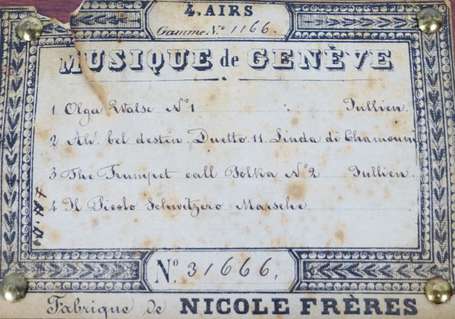 4. AIRS
Gamme No. 1166.
MUSIQUE de GENÈVE
1 Olga Valse No 1 Jullien.
2 Ah! bel destin, Duetto. 11. Linda di Chamouni
3 The Trumpet call Polka No 2 Jullien.
4 Il Piccolo Schwitzero Marsche.
No. 31666.
Fabrique de NICOLE FRÈRES